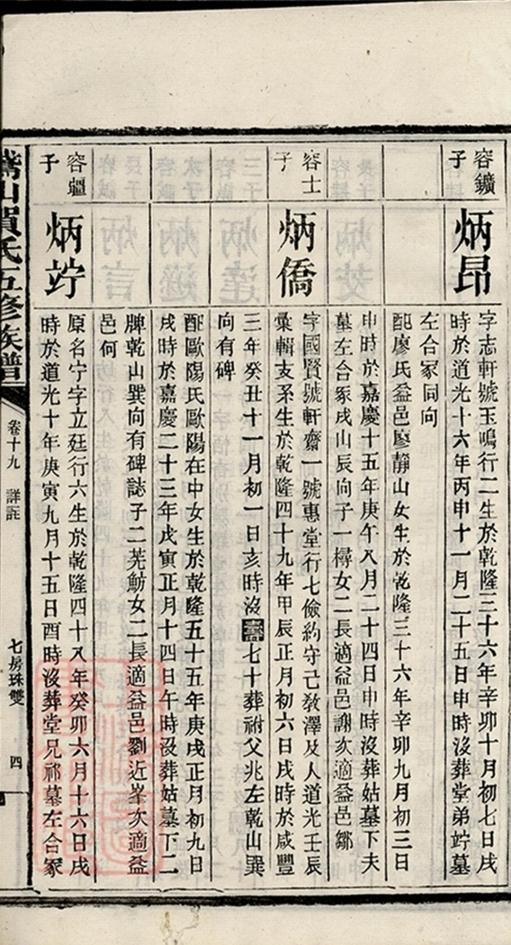 容鑛
子
炳昂
字志軒號玉鳴行二生於乾隆三十六年辛卯十月初七日戌
時於道光十六年丙申十一月二十五日申時沒葬堂弟竚墓
左合冢同向
配廖氏益邑廖靜山女生於乾隆三十六年辛卯九月初三日
申時於嘉慶十五年庚午八月二十四日申時沒葬姑墓下夫
墓左合冢戌山辰向子一樳女二長適益邑謝次適益邑鄒
容士
子
炳僑
字國賢號軒齋一號惠堂行七儉約守己敎澤及人道光壬辰
彙輯支系生於乾隆四十九年甲辰正月初六日戌時於咸豐
三年癸丑十一月初一日亥時沒壽七十葬祔父兆左乾山巽
向有碑
配歐陽氏歐陽在中女生於乾隆五十五年庚戌正月初九日
戌時於嘉慶二十三年戊寅正月十四日午時沒葬姑墓下二
脾乾山巽向有碑誌子二芜勷女二長適益邑劉近峯次適益
邑何
容疆
子
炳竚
原名宁字立廷行六生於乾隆四十八年癸卯六月十六日戌
時於道光十年庚寅九月十五日酉時沒葬堂兄祁墓左合冢
鵞山賀氏五修族譜
卷十九 詳註
七房珠雙
四